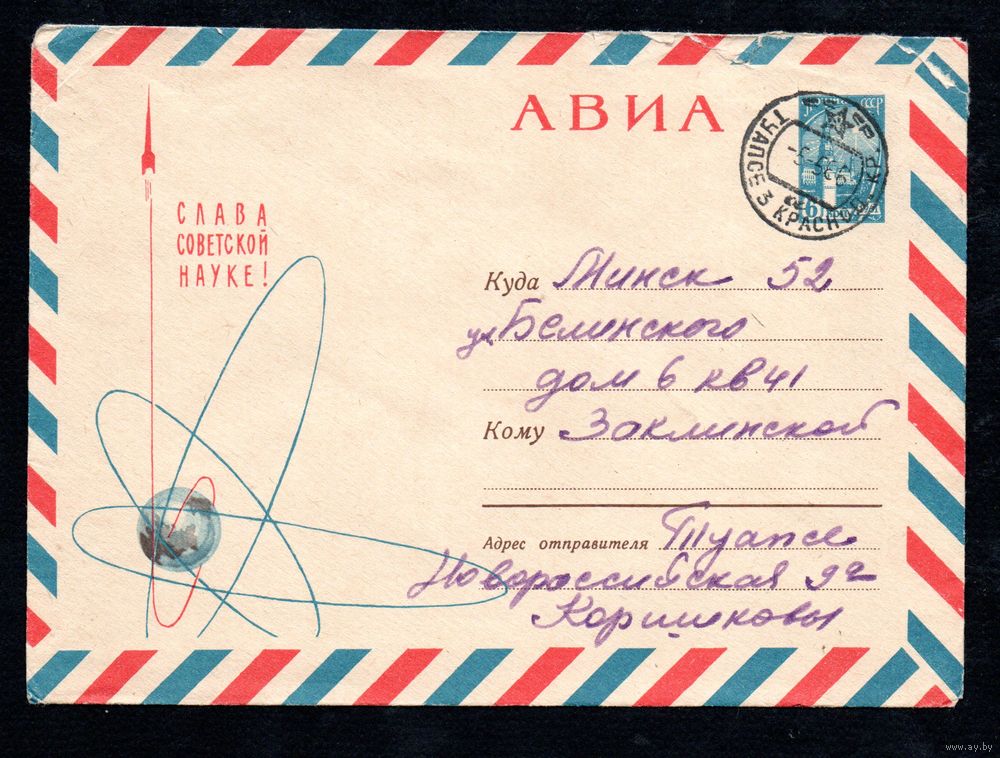 АВИА
СЛАВА
СОВЕТСКОЙ
НАУКЕ!
ТУАПСЕ 3 КРАСНОД. КР.
Куда Минск 52
ул Белинского
дом 6 кв 41
Кому Заклинской
Адрес отправителя Туапсе
Новороссийская 9а
Коршиковы
www.ay.by